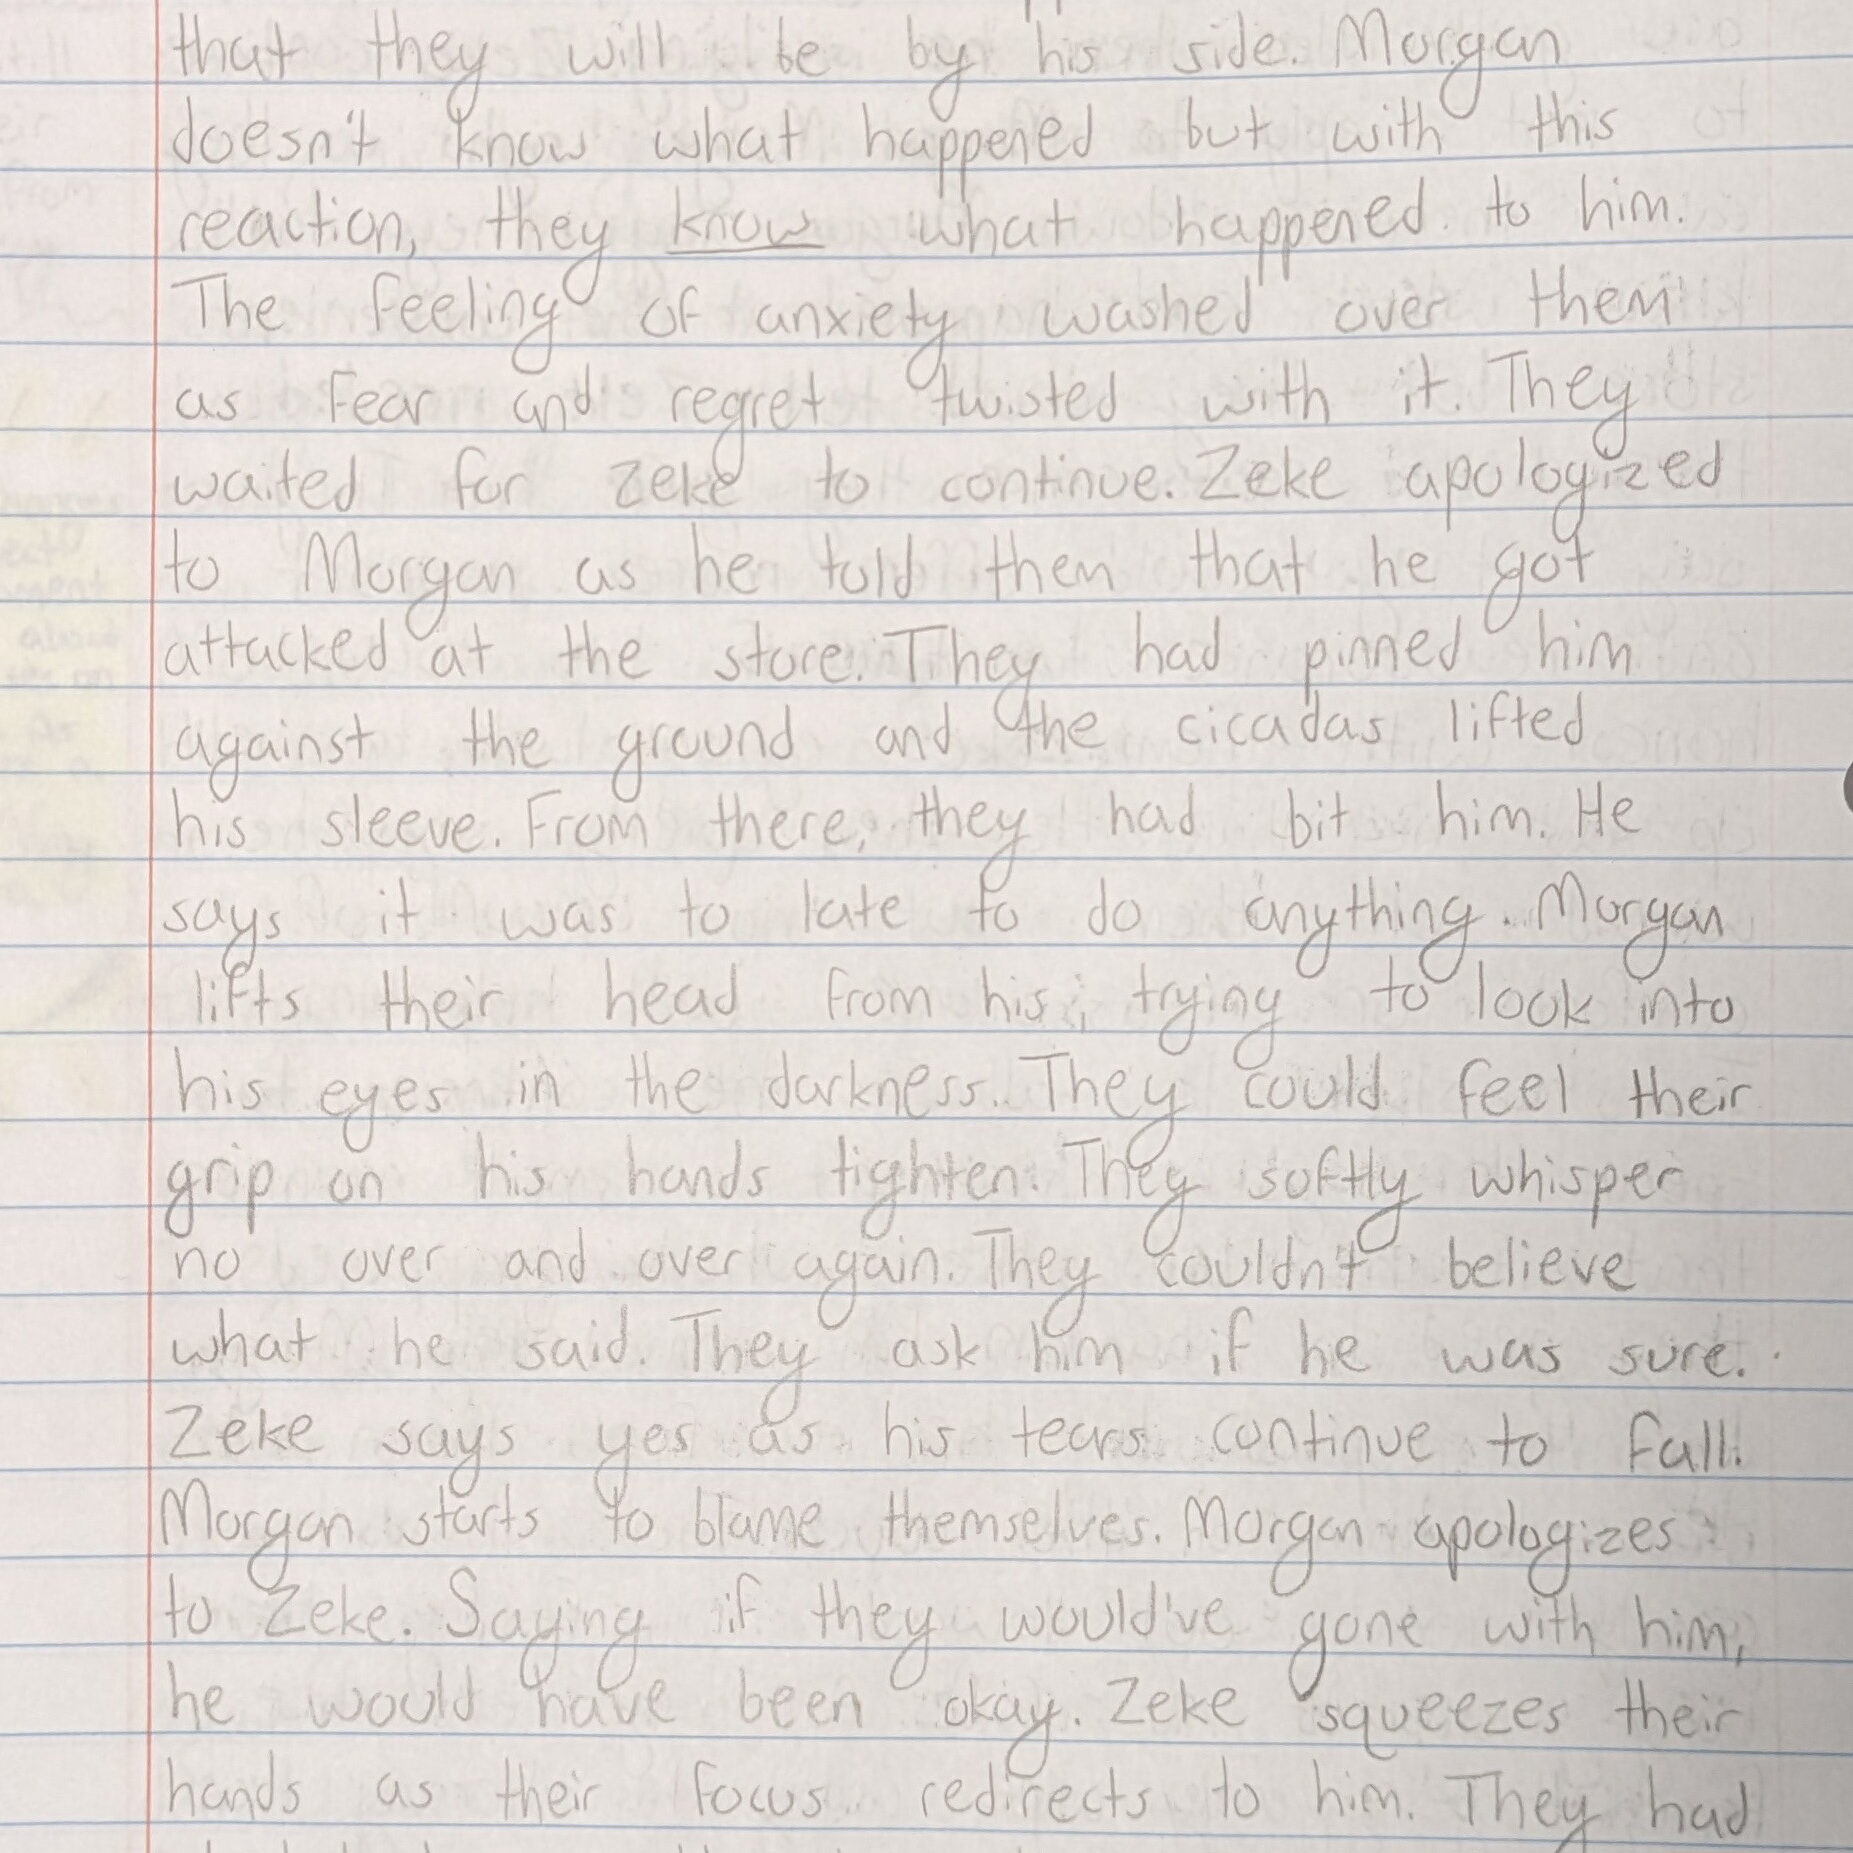 that they will be by his side. Morgan
doesn't know what happened but with this
reaction, they know what happened to him.
The feeling of anxiety washed over them
as fear and regret twisted with it. They
waited for Zeke to continue. Zeke apologized
to Morgan as he told them that he got
attacked at the store. They had pinned him
against the ground and the cicadas lifted
his sleeve. From there, they had bit him. He
says it was to late to do anything. Morgan
lifts their head from his, trying to look into
his eyes in the darkness. They could feel their
grip on his hands tighten. They softly whisper
no over and over again. They couldn't believe
what he said. They ask him if he was sure.
Zeke says yes as his tears continue to fall.
Morgan starts to blame themselves. Morgan apologizes
to Zeke. Saying if they would've gone with him,
he would have been okay. Zeke squeezes their
hands as their focus redirects to him. They had